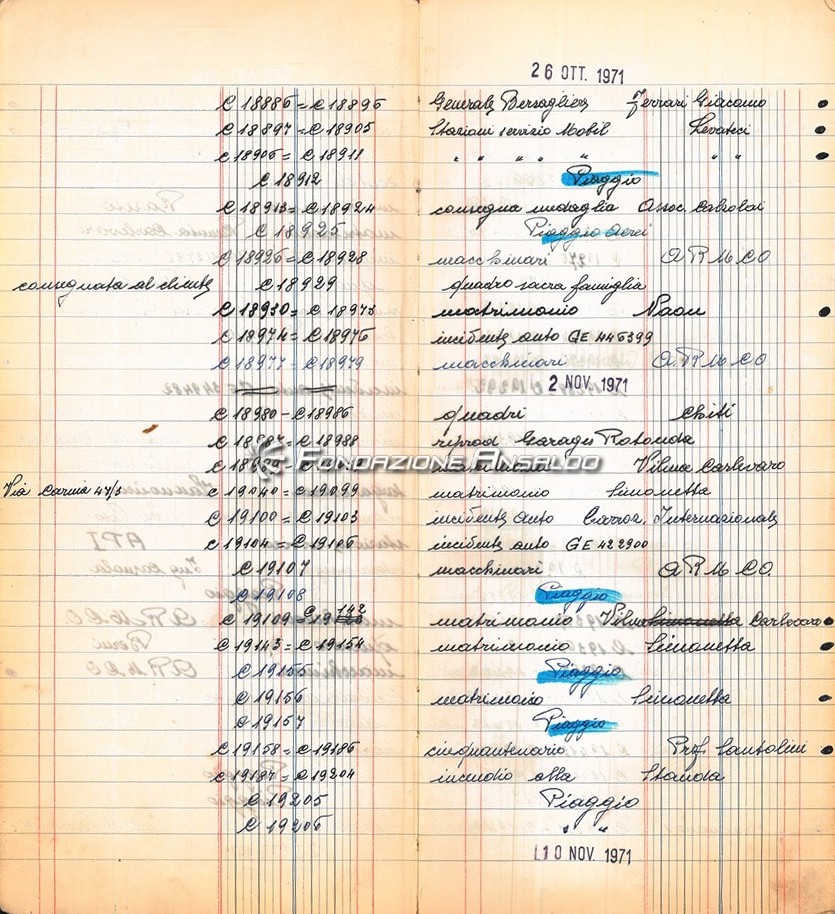 26 OTT. 1971
C 18886 = C 18896 Generale Bersagliere Ferrari Giacomo
C 18897 = C 18905 Stazioni servizio Mobil Levateci
C 18906 = C 18911 " " " " " " "
C 18912 Piaggio
C 18913 = C 18924 consegna medaglia Assoc. Calzolai
C 18925 Piaggio Aerei
C 18926 = C 18928 macchinari A R M C O
consegnata al cliente C 18929 quadro sacra famiglia
C 18930 = C 18973 matrimonio Naon
C 18974 = C 18976 incidente auto GE 446399
C 18977 - C 18979 macchinari A.R.M.C.O
2 NOV. 1971
C 18980 - C 18986 quadri Chiti
C 18987 = C 18988 riprod Garages Rotonda
FONDAZIONE ANSALDO
matrimonio Vilma Carlevaro
Via Carnia 47/3 C 19040 = C 19099 matrimonio Simonetta
C 19100 = C 19103 incidente auto Carroz. Internazionale
C 19104 = C 19106 incidente auto GE 422900
C 19107 macchinari A R M C O.
C 19108 Piaggio
C 19109 = C 19142 matrimonio Vilma Simonetta Carlevaro
C 19143 = C 19154 matrimonio Simonetta
C 19155 Piaggio
C 19156 matrimonio Simonetta
C 19157 Piaggio
C 19158 = C 19186 cinquantenario Prof. Santolini
C 19187 = C 19204 incendio alla Standa
C 19205 Piaggio
C 19206 " "
10 NOV. 1971